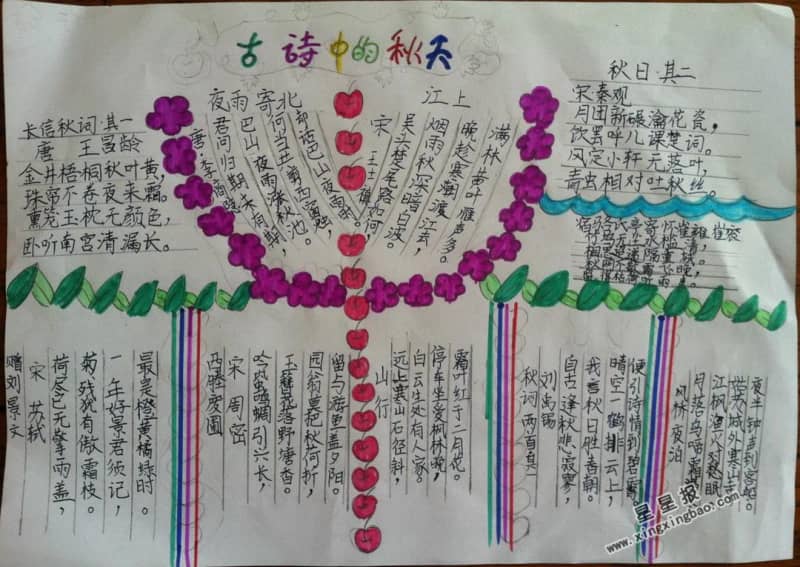 古诗中的秋天
长信秋词·其一
唐 王昌龄
金井梧桐秋叶黄,
珠帘不卷夜来霜。
熏笼玉枕无颜色,
卧听南宫清漏长。
夜雨寄北
唐·李商隐
君问归期未有期,
巴山夜雨涨秋池。
何当共剪西窗烛,
却话巴山夜雨时。
江上
宋 王士禛
吴头楚尾路如何,
烟雨秋深暗白波。
晚趁寒潮渡江去,
满林黄叶雁声多。
秋日·其二
宋·秦观
月团新碾瀹花瓷,
饮罢呼儿课楚词。
风定小轩无落叶,
青虫相对吐秋丝。
宿骆氏亭寄怀崔雍崔衮
赠刘景文
宋 苏轼
荷尽已无擎雨盖,
菊残犹有傲霜枝。
一年好景君须记,
最是橙黄橘绿时。
西塍废圃
宋 周密
吟蛩鸣蜩引兴长,
玉簪花落野塘香。
园翁莫把秋荷折,
留与游鱼盖夕阳。
山行
远上寒山石径斜,
白云生处有人家。
停车坐爱枫林晚,
霜叶红于二月花。
秋词两首其一
刘禹锡
自古逢秋悲寂寥,
我言秋日胜春朝。
晴空一鹤排云上,
便引诗情到碧霄。
枫桥夜泊
月落乌啼霜
江枫渔火对愁眠,
城外寒山寺
夜半钟声到客船。
星星报
www.xingxingbao.com